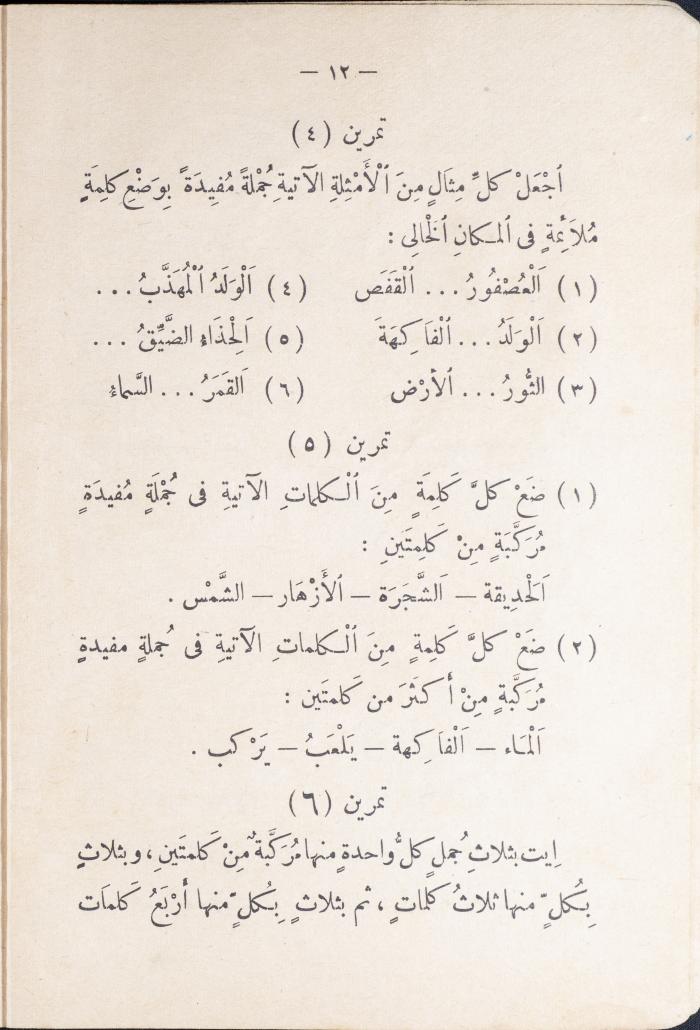 — ١٢ —
تمرين (٤)
اُجْعَلْ كلَّ مِثَالٍ مِنَ ٱلْأَمْثِلةِ الآتيةِ جُمْلةً مُفِيدَةً بِوَضْعِ كلِمَةٍ
مُلاَئِمةٍ فى ٱلمكانِ ٱلْخَالِى :
(١) اَلْعُصْفُورُ ... ٱلْقَفَص (٤) اَلْوَلَدُ ٱلْمُهَذَّبُ ...
(٢) اَلْوَلَدُ ... ٱلْفَاكِهَةَ (٥) اَلْحِذَاءُ الضَّيِّقُ ...
(٣) الثَّورُ ... ٱلأرْض (٦) اَلقَمَرُ ... السَّماءُ
تمرين (٥)
(١) ضَعْ كلَّ كَلِمَةٍ مِنَ ٱلْكلماتِ الآتيةِ فى جُمْلَةٍ مُفيدَةٍ
مُرَكَّبَةٍ مِنْ كَلِمتَينِ :
اَلْحدِيقة — اَلشَّجَرَة — ٱلأَزْهَار — الشَّمْس .
(٢) ضَعْ كلَّ كَلِمةٍ مِنَ ٱلْكلماتِ الآتيةِ فى جُملةٍ مفيدةٍ
مُرَكَّبةٍ مِنْ أكثَرَ من كَلمتَين :
اَلْمَاء — اَلْفاكِهة — يَلْعَبُ — يَرْكب .
تمرين (٦)
اِيت بثلاثِ جُملٍ كلُّ واحدةٍ منها مُرَكَّبةٌ مِنْ كَلمتَينِ ، وبثلاثٍ
بِكُلٍّ منها ثلاثُ كلماتٍ ، ثم بثلاثٍ بِكُلٍّ منها أَرْبَعُ كَلمَات